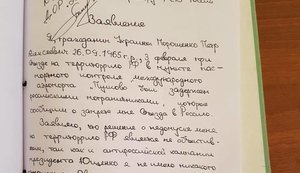 Заявление
Я, гражданин Украины Порошенко Петр
Алексеевич 26.09.1965 г.р., 3 февраля при
въезде на территорию РФ в пункте пас-
портного контроля международного
аэропорта Пулково был задержан
российскими пограничниками, которые
сообщили о запрете мне въезда в Россию.
Заявляю, что решение о недопуске меня
на территорию РФ является не объектив-
ным, так как к антироссийской кампании
президента Ющенко я не имею никакого